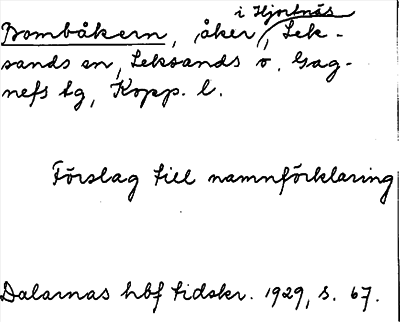 i Hjortnäs
Bombåkern, åker, Lek-
sands sn, Leksands o. Gag-
nefs tg, Kopp. l.
Förslag till namnförklaring
Dalarnas hbf tidskr. 1929, s. 67.